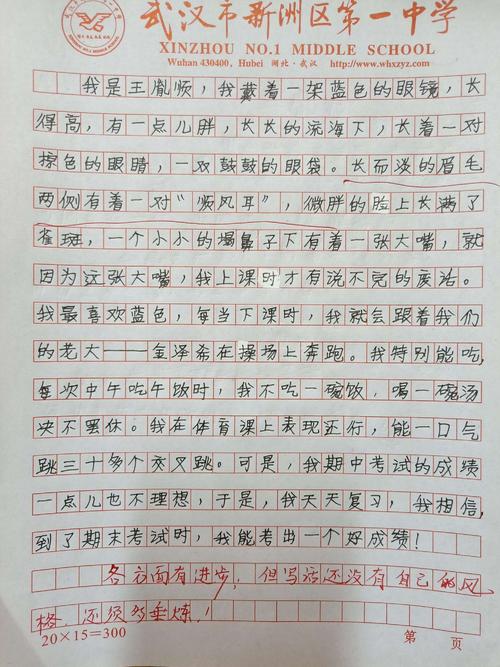 武汉市新洲区第一中学
XINZHOU NO.1 MIDDLE SCHOOL
Wuhan 430400, Hubei 湖北·武汉 http://www.whxzyz.com
我是王胤顺，我戴着一架蓝色的眼镜，长
得高，有一点儿胖，长长的流海下，长着一对
棕色的眼睛，一双鼓鼓的眼袋。长而淡的眉毛
两侧有着一对“顺风耳”，微胖的脸上长满了
雀斑，一个小小的塌鼻子下有着一张大嘴，就
因为这张大嘴，我上课时才有说不完的废话。
我最喜欢蓝色，每当下课时，我就会跟着我们
的老大——金泽希在操场上奔跑。我特别能吃，
每次中午吃午饭时，我不吃一碗饭，喝一碗汤
决不罢休。我在体育课上表现还行，能一口气
跳三十多个交叉跳。可是，我期中考试的成绩
一点儿也不理想，于是，我天天复习，我相信，
到了期末考试时，我能考出一个好成绩！
各方面有进步，但写话还没有自己的风
格，还须多垂炼！
20×15=300
第 页